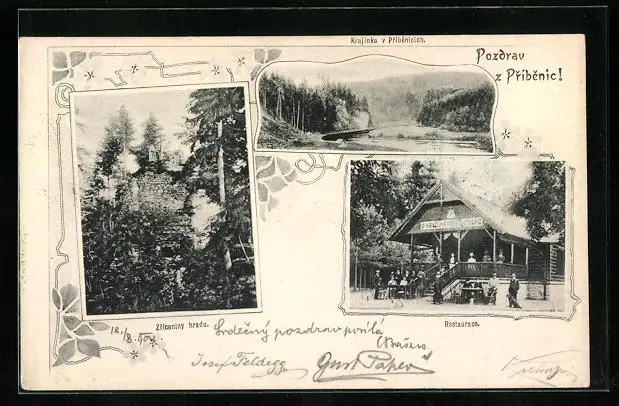 Krajinka v Příběnicích.
Pozdrav
z Příběnic!
Zříceniny hradu.
Restaurace.
12./8. 904
Srdečný pozdrav posílá
Josef Feldegg
Gust